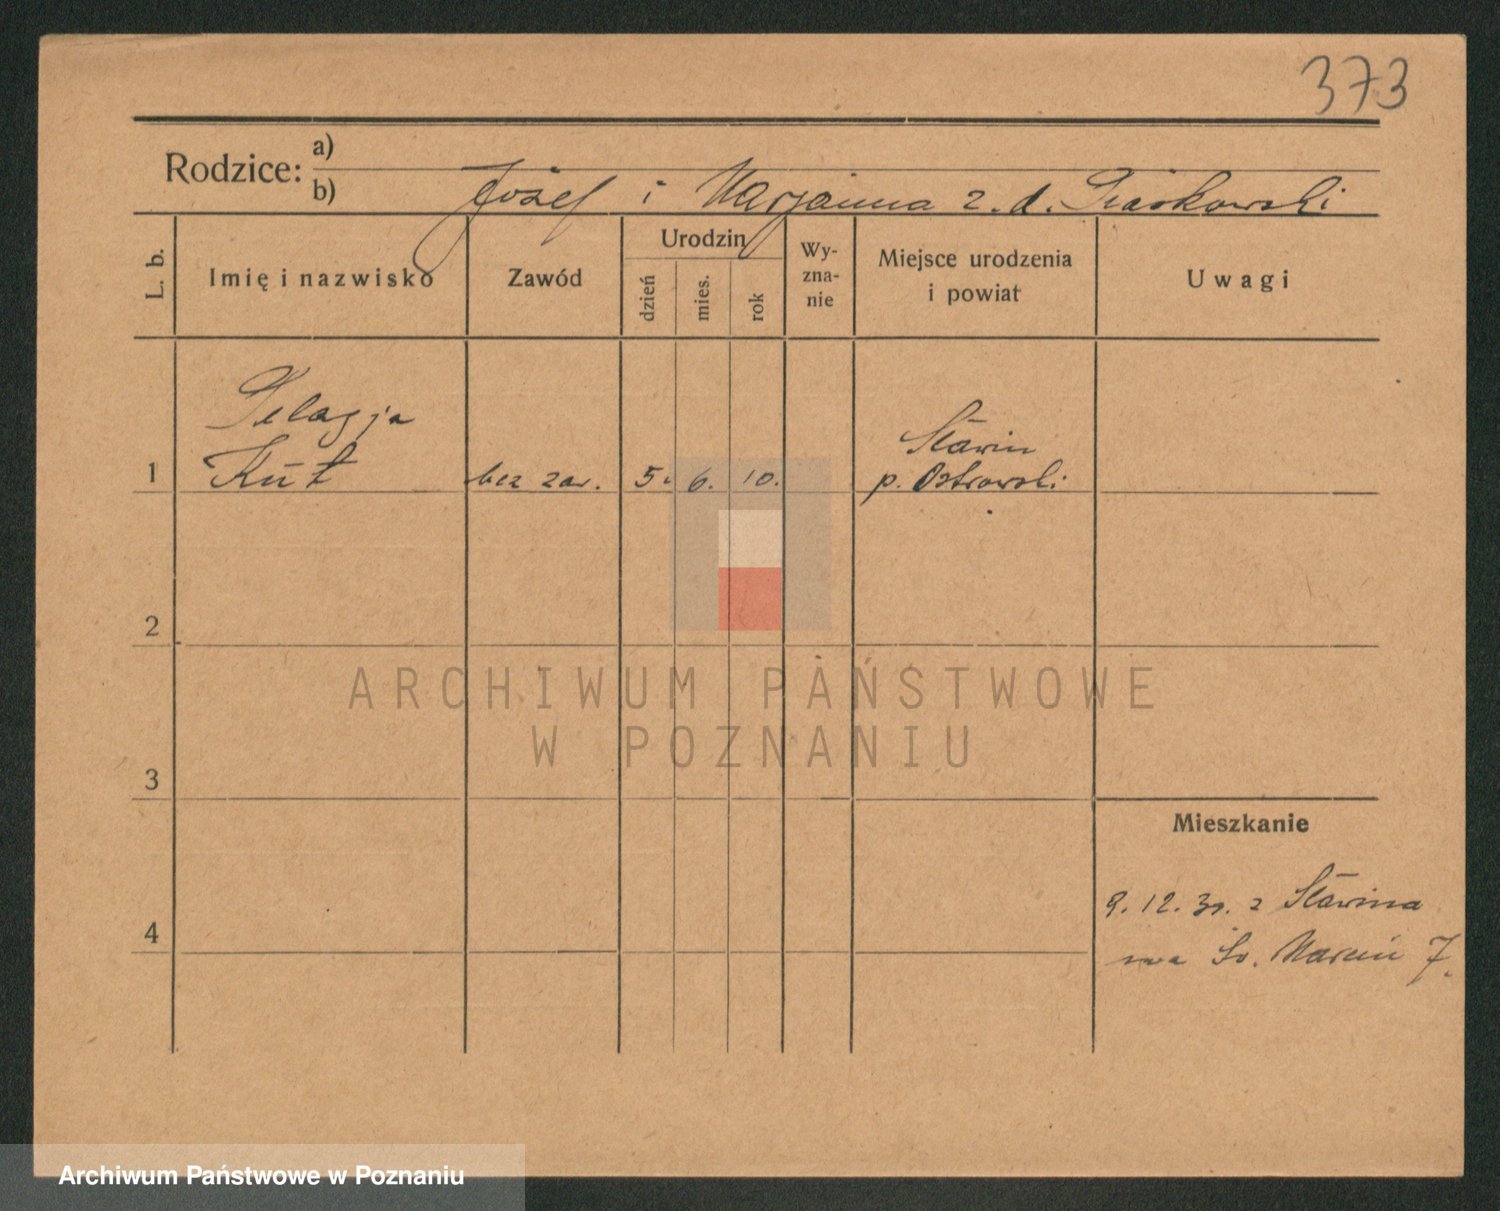 373
Rodzice: a)
b) Józef i Marjanna z. d. Piaskowski
L. b.
Imię i nazwisko
Zawód
Urodzin
dzień
mies.
rok
Wy-
zna-
nie
Miejsce urodzenia
i powiat
Uwagi
Pelagja
1 Kut bez zaw. 5. 6. 10.
Sławin
p. Ostrowski
2
3
4
Mieszkanie
9. 12. z Sławina
na Św. Marcin 7.
ARCHIWUM PAŃSTWOWE
W POZNANIU
Archiwum Państwowe w Poznaniu